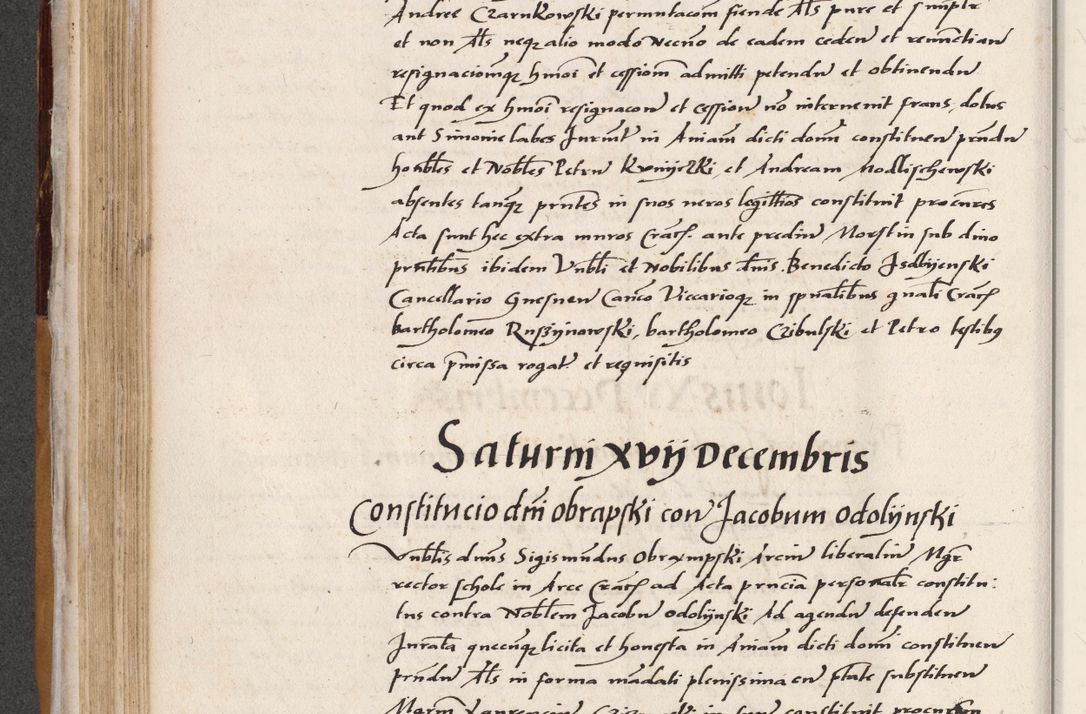 Andree Czarnkowski permutacom fiende Als pure et simplr
et non Als neqz alio modo Necno de eadem ceden et renunctian
resignaciomqz hmoi et cessiom admitti petendu et obtinendu
Et quod ex hmoi resignacon et cession no interuenit fraus, dolus
aut Simonie labes Juramt in Aniam dicti domi constituen prndu
honbles et Nobles Petru et Andream Modlischewski
absentes tanqz prntes in suos veros legittios constituit procures
Acta sunt hec extra muros Crac. ante prediu Morstin sub dino
prntibus ibidem Vnbli et Nobilibus dnis Benedicto Isdbijenski
Cancellario Gnesnen Canco Viccarioqz in spualibus gnali Crac
Bartholomeo Ruszijnowski, bartholomeo Czibulski et Petro testibus
circa pmissa rogat et requisitis
Saturni xvij Decembris
Constitucio dni obrapski con Jacobum Odolijnski
Vnblis dnus Sigismundus Obrampski Arciu liberaliu Mgr
rector schole in Arce Crac ad Acta prncia personalr constitu:
tus contra Noblem Jacobu Odolijnski Ad agendu defenden
Jurata quecunqz licita et honesta in Aniam dicti domi constituen
prndu Als in forma mandati plenissima cu ptate substituen